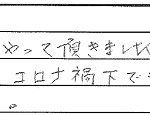 やって頂きました
コロナ禍下で
。